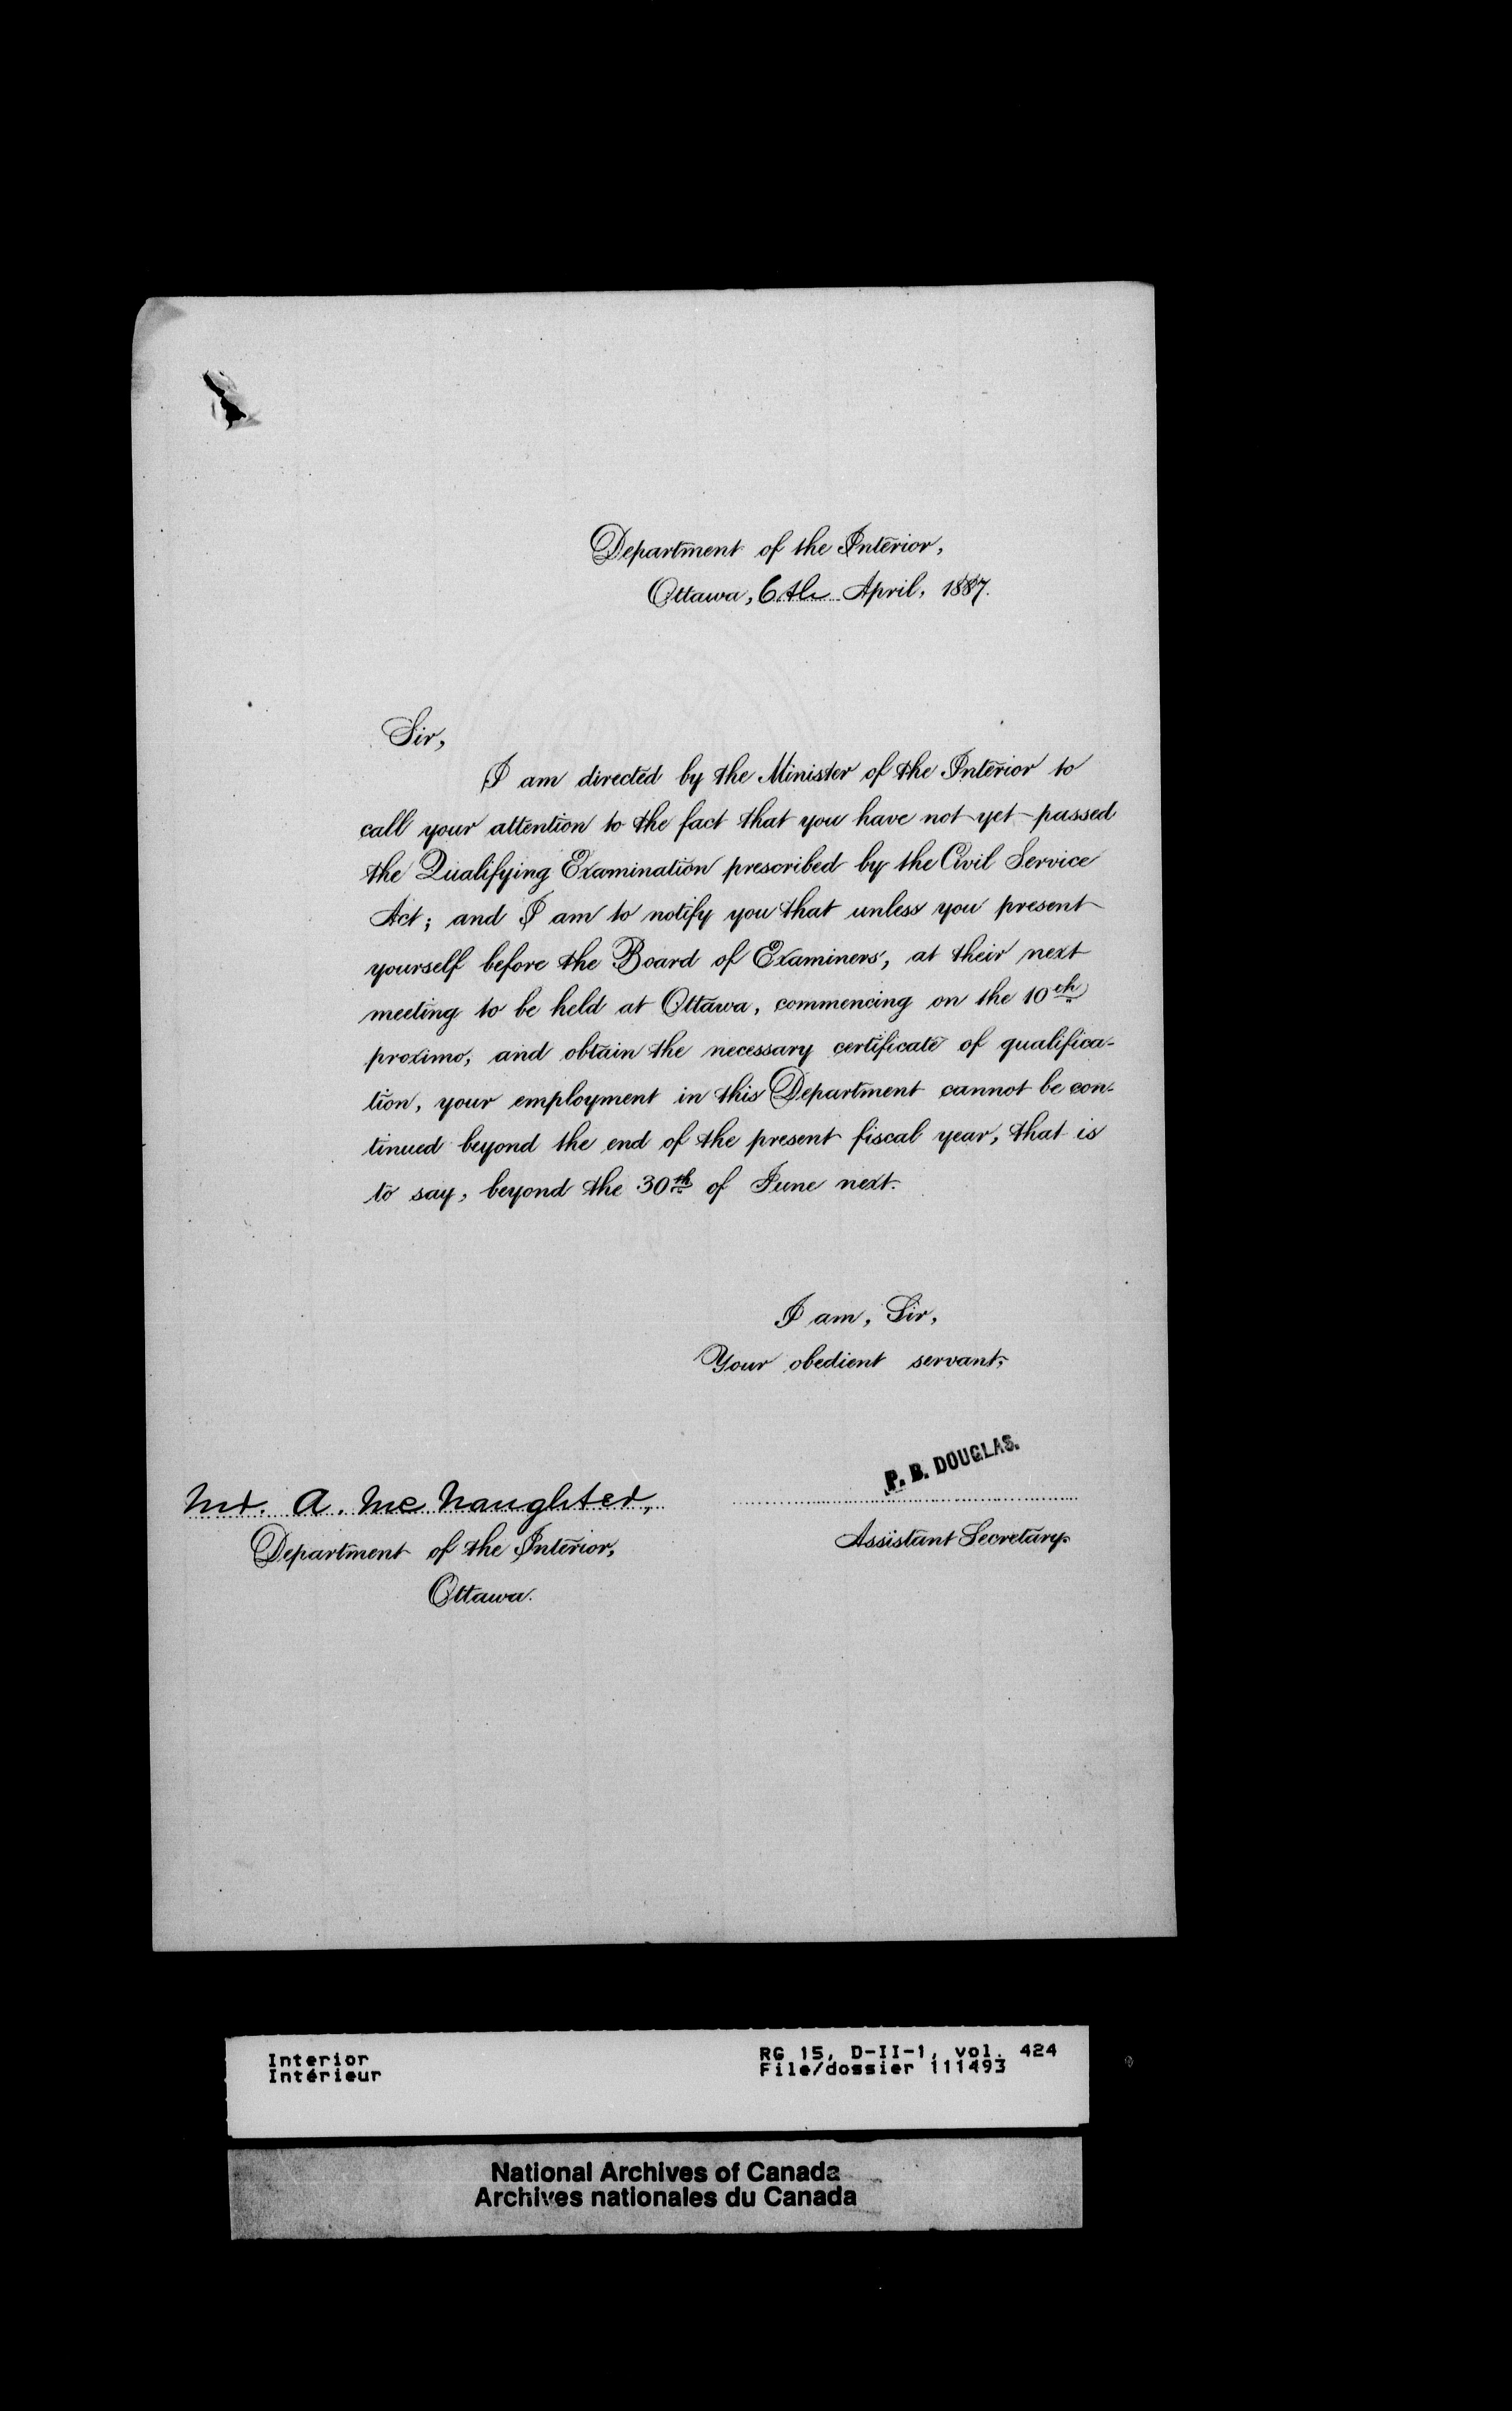 Department of the Interior,
Ottawa, 6th April, 1887.
Sir,
I am directed by the Minister of the Interior to
call your attention to the fact that you have not yet passed
the Qualifying Examination prescribed by the Civil Service
Act; and I am to notify you that unless you present
yourself before the Board of Examiners, at their next
meeting to be held at Ottawa, commencing on the 10th
proximo, and obtain the necessary certificate of qualifica-
tion, your employment in this Department cannot be con-
tinued beyond the end of the present fiscal year, that is
to say, beyond the 30th of June next.
I am, Sir,
Your obedient servant,
P. B. DOUGLAS.
Assistant Secretary.
Mr. A. McNaughter,
Department of the Interior,
Ottawa.
Interior
Intérieur
RG 15, D-II-1, vol. 424
File/dossier 111493
National Archives of Canada
Archives nationales du Canada